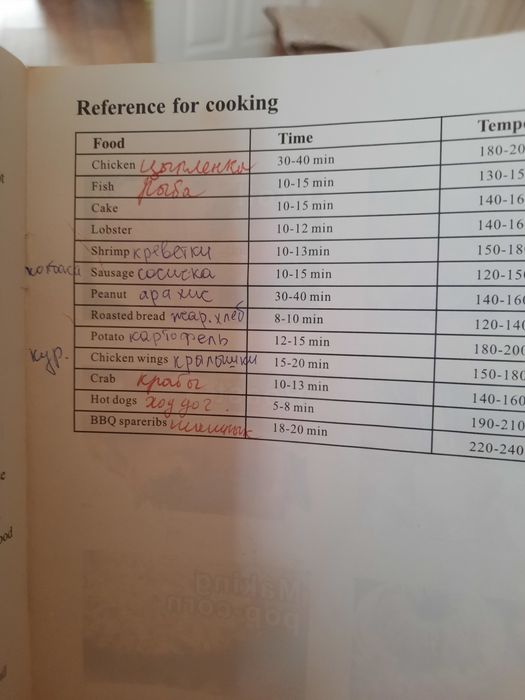 Reference for cooking
Food Time Tempe
Chicken цыпленка 30-40 min 180-20
Fish Рыба 10-15 min 130-15
Cake 10-15 min 140-16
Lobster 10-12 min 140-16
Shrimp креветки 10-13min 150-18
Sausage сосиска 10-15 min 120-15
Peanut арахис 30-40 min 140-16
Roasted bread жар. хлеб 8-10 min 120-14
Potato картофель 12-15 min 180-200
кур. Chicken wings крылышки 15-20 min 150-180
Crab крабы 10-13 min 140-160
Hot dogs ход дог. 5-8 min 190-210
BBQ spareribs 18-20 min 220-240
Making
pop-corn